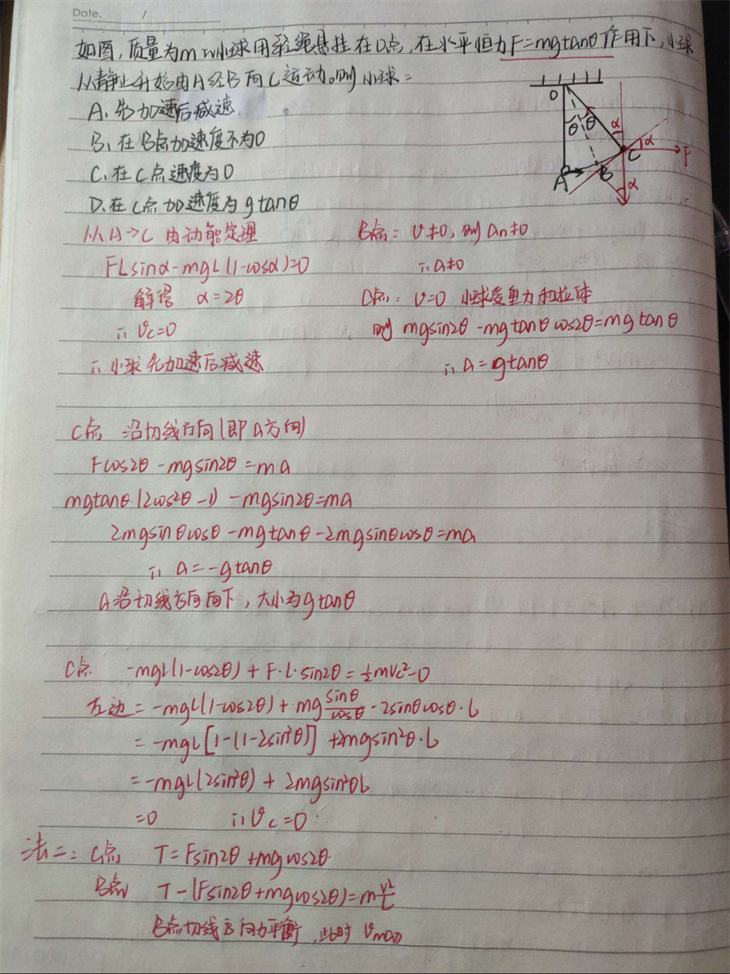 Date. /
如图,质量为m的小球用轻绳悬挂在O点,在水平恒力F=mgtanθ作用下,小球
从静止开始由A经B向C运动。则小球:
A、先加速后减速
B、在B点加速度不为0
C、在C点速度为0
D、在C点加速度为gtanθ
O
θ θ
α
C
α
F
A
B
α
从A→C 由动能定理
FLsinα-mgL(1-cosα)=0
解得 α=2θ
∴ Vc=0
∴ 小球先加速后减速
B点: v≠0, 则 an≠0
∴ a≠0
C点: v=0 小球受重力和拉力
则 mgsin2θ-mgtanθcos2θ=mgtanθ
∴ a=gtanθ
C点 沿切线方向(即a方向)
Fcos2θ-mgsin2θ=ma
mgtanθ(2cos²θ-1)-mgsin2θ=ma
2mgsinθcosθ-mgtanθ-2mgsinθcosθ=ma
∴ a=-gtanθ
a沿切线方向向下,大小为gtanθ
C点 -mgL(1-cos2θ)+F·L·sin2θ=½mVc²-0
左边=-mgL(1-cos2θ)+mg sinθ/cosθ·2sinθcosθ·L
=-mgL[1-(1-2sin²θ)]+2mgsin²θ·L
=-mgL(2sin²θ)+2mgsin²θL
=0 ∴Vc=0
法二: C点 T=Fsin2θ+mgcos2θ
B点 T-(Fsin2θ+mgcos2θ)=m v²/L
B点切线方向力平衡,此时 Vmax